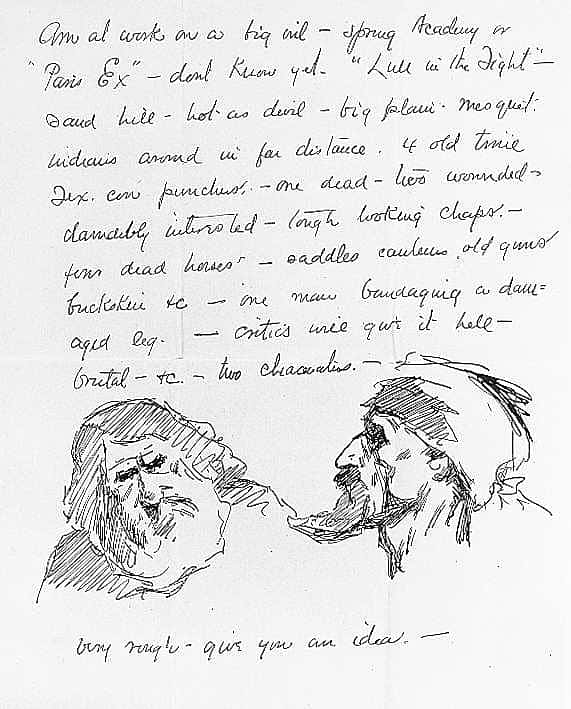 Am at work on a big oil – spring Academy or
"Paris Ex" – dont know yet. "Lull in the Fight" –
sand hill – hot as devil – big plain – mesquit.
indians around in far distance. 4 old time
Tex. cow punchers. – one dead – two wounded –
damdably interested – tough looking chaps. –
four dead horses – saddles canteens, old guns
buckskin &c – one man bandaging a dam=
aged leg. — critics will give it hell –
brutal – &c. – two characters. –
very rough – give you an idea. —